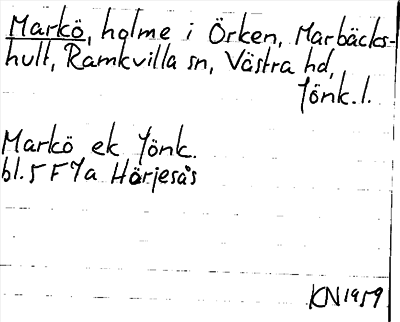 Markö, holme i Örken, Marbäcks-
hult, Ramkvilla sn, Västra hd,
Jönk. l.
Markö ek Jönk.
bl. 5 F 7a Härjesås
KN 1959